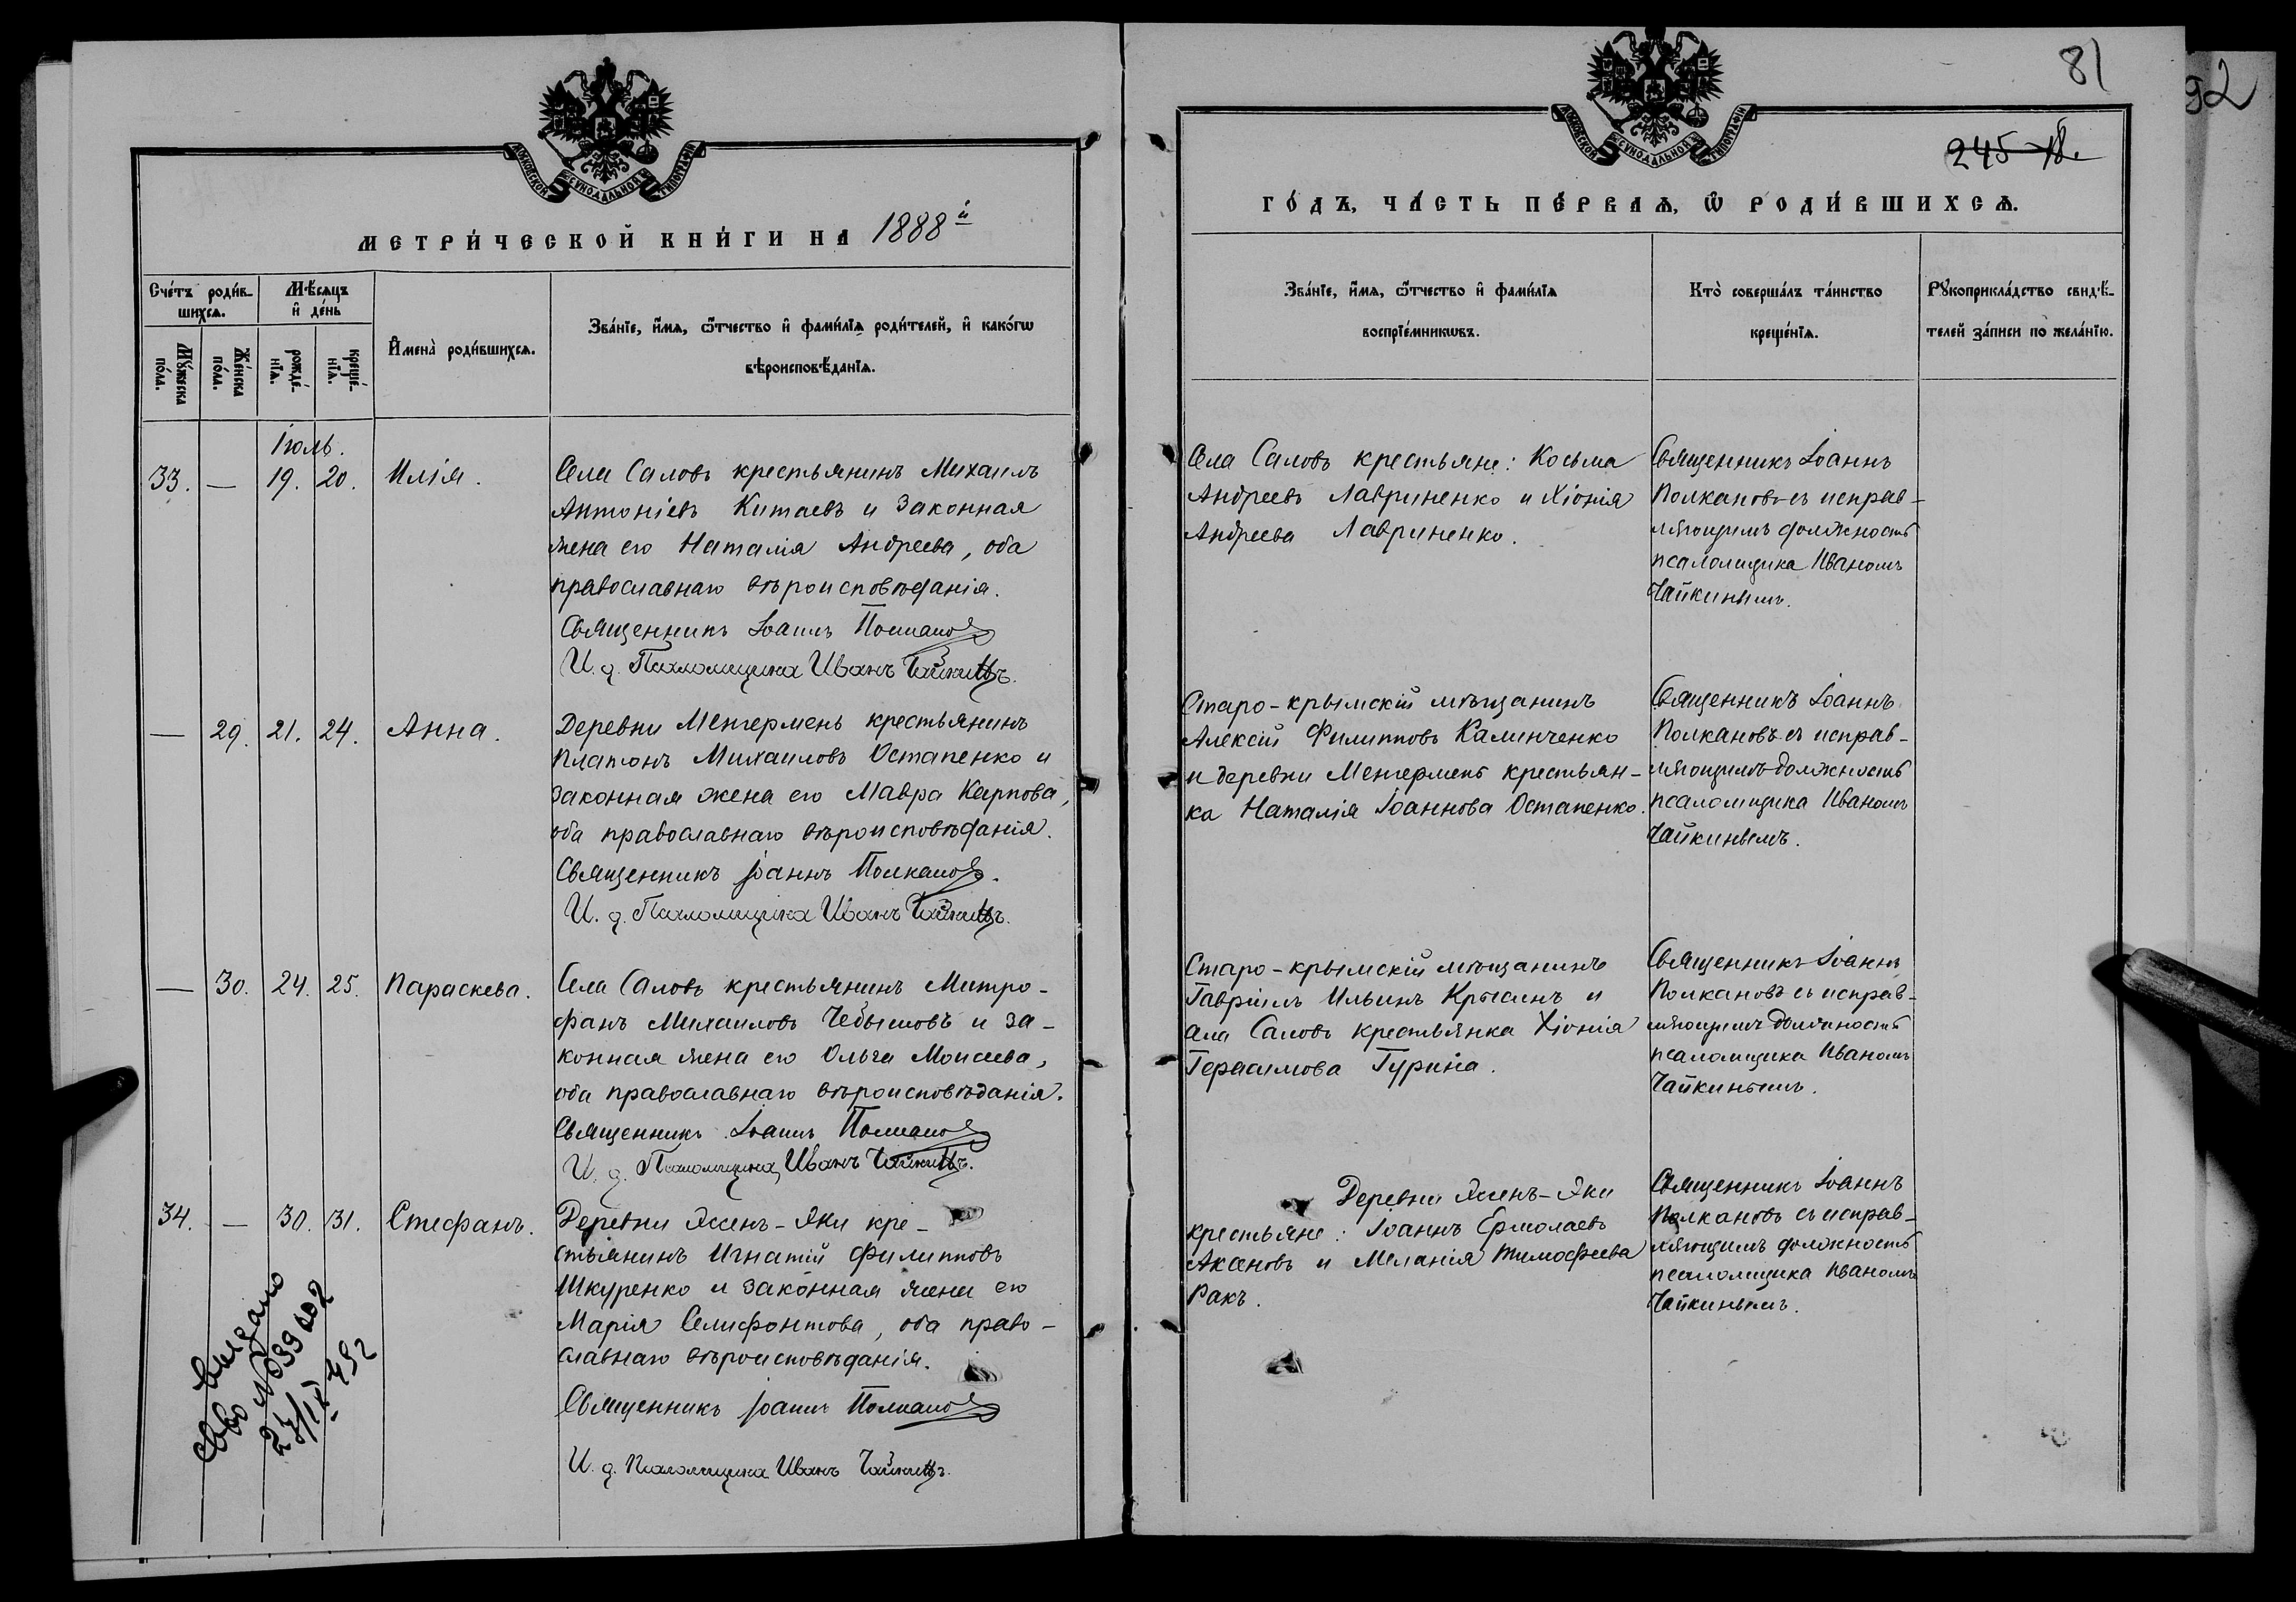 МОСКОВСКОЙ СѴНОДАЛЬНОЙ ТИПОГРАФІИ
МЕТРИ́ЧЕСКОЙ КНИ́ГИ НА 1888й
Сче́тъ роди́в-
шихсѧ.
Мѣ́сяцъ
и҆ де́нь
Мꙋ́жеска
по́ла.
Же́нска
по́ла.
рожде́-
нїѧ.
креще́-
нїѧ.
И҆мена̀ роди́вшихсѧ.
Зва́нїе, и҆́мѧ, ѻ҆́тчество и҆ фами́лїѧ роди́телей, и҆ како́гѡ
вѣроисповѣ́данїѧ.
Іюль.
33. — 19. 20. Илія.
Села Саловъ крестьянинъ Михаилъ
Антоніевъ Китаевъ и законная
жена его Наталія Андреева, оба
православнаго вѣроисповѣданія.
Священникъ Іоаннъ Полкановъ
И. д. Псаломщика Иванъ Чайкинъ.
— 29. 21. 24. Анна.
Деревни Менгермень крестьянинъ
Платонъ Михаиловъ Остапенко и
законная жена его Мавра Карпова,
оба православнаго вѣроисповѣданія.
Священникъ Іоаннъ Полкановъ.
И. д. Псаломщика Иванъ Чайкинъ.
— 30. 24. 25. Параскева.
Села Саловъ крестьянинъ Митро-
фанъ Михаиловъ Чебышовъ и за-
конная жена его Ольга Моисеева,
оба православнаго вѣроисповѣданія.
Священникъ Іоаннъ Полкановъ
И. д. Псаломщика Иванъ Чайкинъ.
34. — 30. 31. Стефанъ.
Деревни Яссенъ-Яки кре-
стьянинъ Игнатій Филипповъ
Шкуренко и законная жена его
Марія Селифонтова, оба право-
славнаго вѣроисповѣданія.
Священникъ Іоаннъ Полкановъ
И. д. Псаломщика Иванъ Чайкинъ.
выдано
сво №
81
92
245
МОСКОВСКОЙ СѴНОДАЛЬНОЙ ТИПОГРАФІИ
ГО́ДЪ, ЧА́СТЬ ПЕ́РВАѦ, Ѡ҆ РОДИ́ВШИХСѦ.
Зва́нїе, и҆́мѧ, ѻ҆́тчество и҆ фами́лїѧ
воспрїе́мникѡвъ.
Кто̀ соверша́лъ та́инство
креще́нїѧ.
Рꙋкоприкла́дство свидѣ́-
телей за́писи по жела́нїю.
Села Саловъ крестьяне: Косьма
Андреевъ Лавриненко и Хіонія
Андреева Лавриненко.
Священникъ Іоаннъ
Полкановъ съ исправ-
ляющимъ должность
псаломщика Иваномъ
Чайкинымъ.
Старо-крымскій мѣщанинъ
Алексій Филипповъ Калинченко
и деревни Менгермень крестьян-
ка Наталія Іоаннова Остапенко.
Священникъ Іоаннъ
Полкановъ съ исправ-
ляющимъ должность
псаломщика Иваномъ
Чайкинымъ.
Старо-крымскій мѣщанинъ
Гавріилъ Ильинъ Крысинъ и
села Саловъ крестьянка Хіонія
Герасимова Гурина.
Священникъ Іоаннъ
Полкановъ съ исправ-
ляющимъ должность
псаломщика Иваномъ
Чайкинымъ.
Деревни Яссенъ-Яки
крестьяне: Іоаннъ Ермолаевъ
Аксеновъ и Меланія Тимофеева
Ракъ.
Священникъ Іоаннъ
Полкановъ съ исправ-
ляющимъ должность
псаломщика Иваномъ
Чайкинымъ.